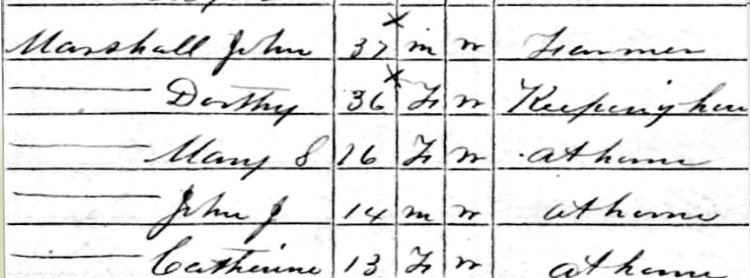 Marshall John 37 m w Farmer
—— Dorthy 36 F w Keeping hou
—— Mary S 16 F w at home
—— John J 14 m w at home
—— Catherine 13 F w at home